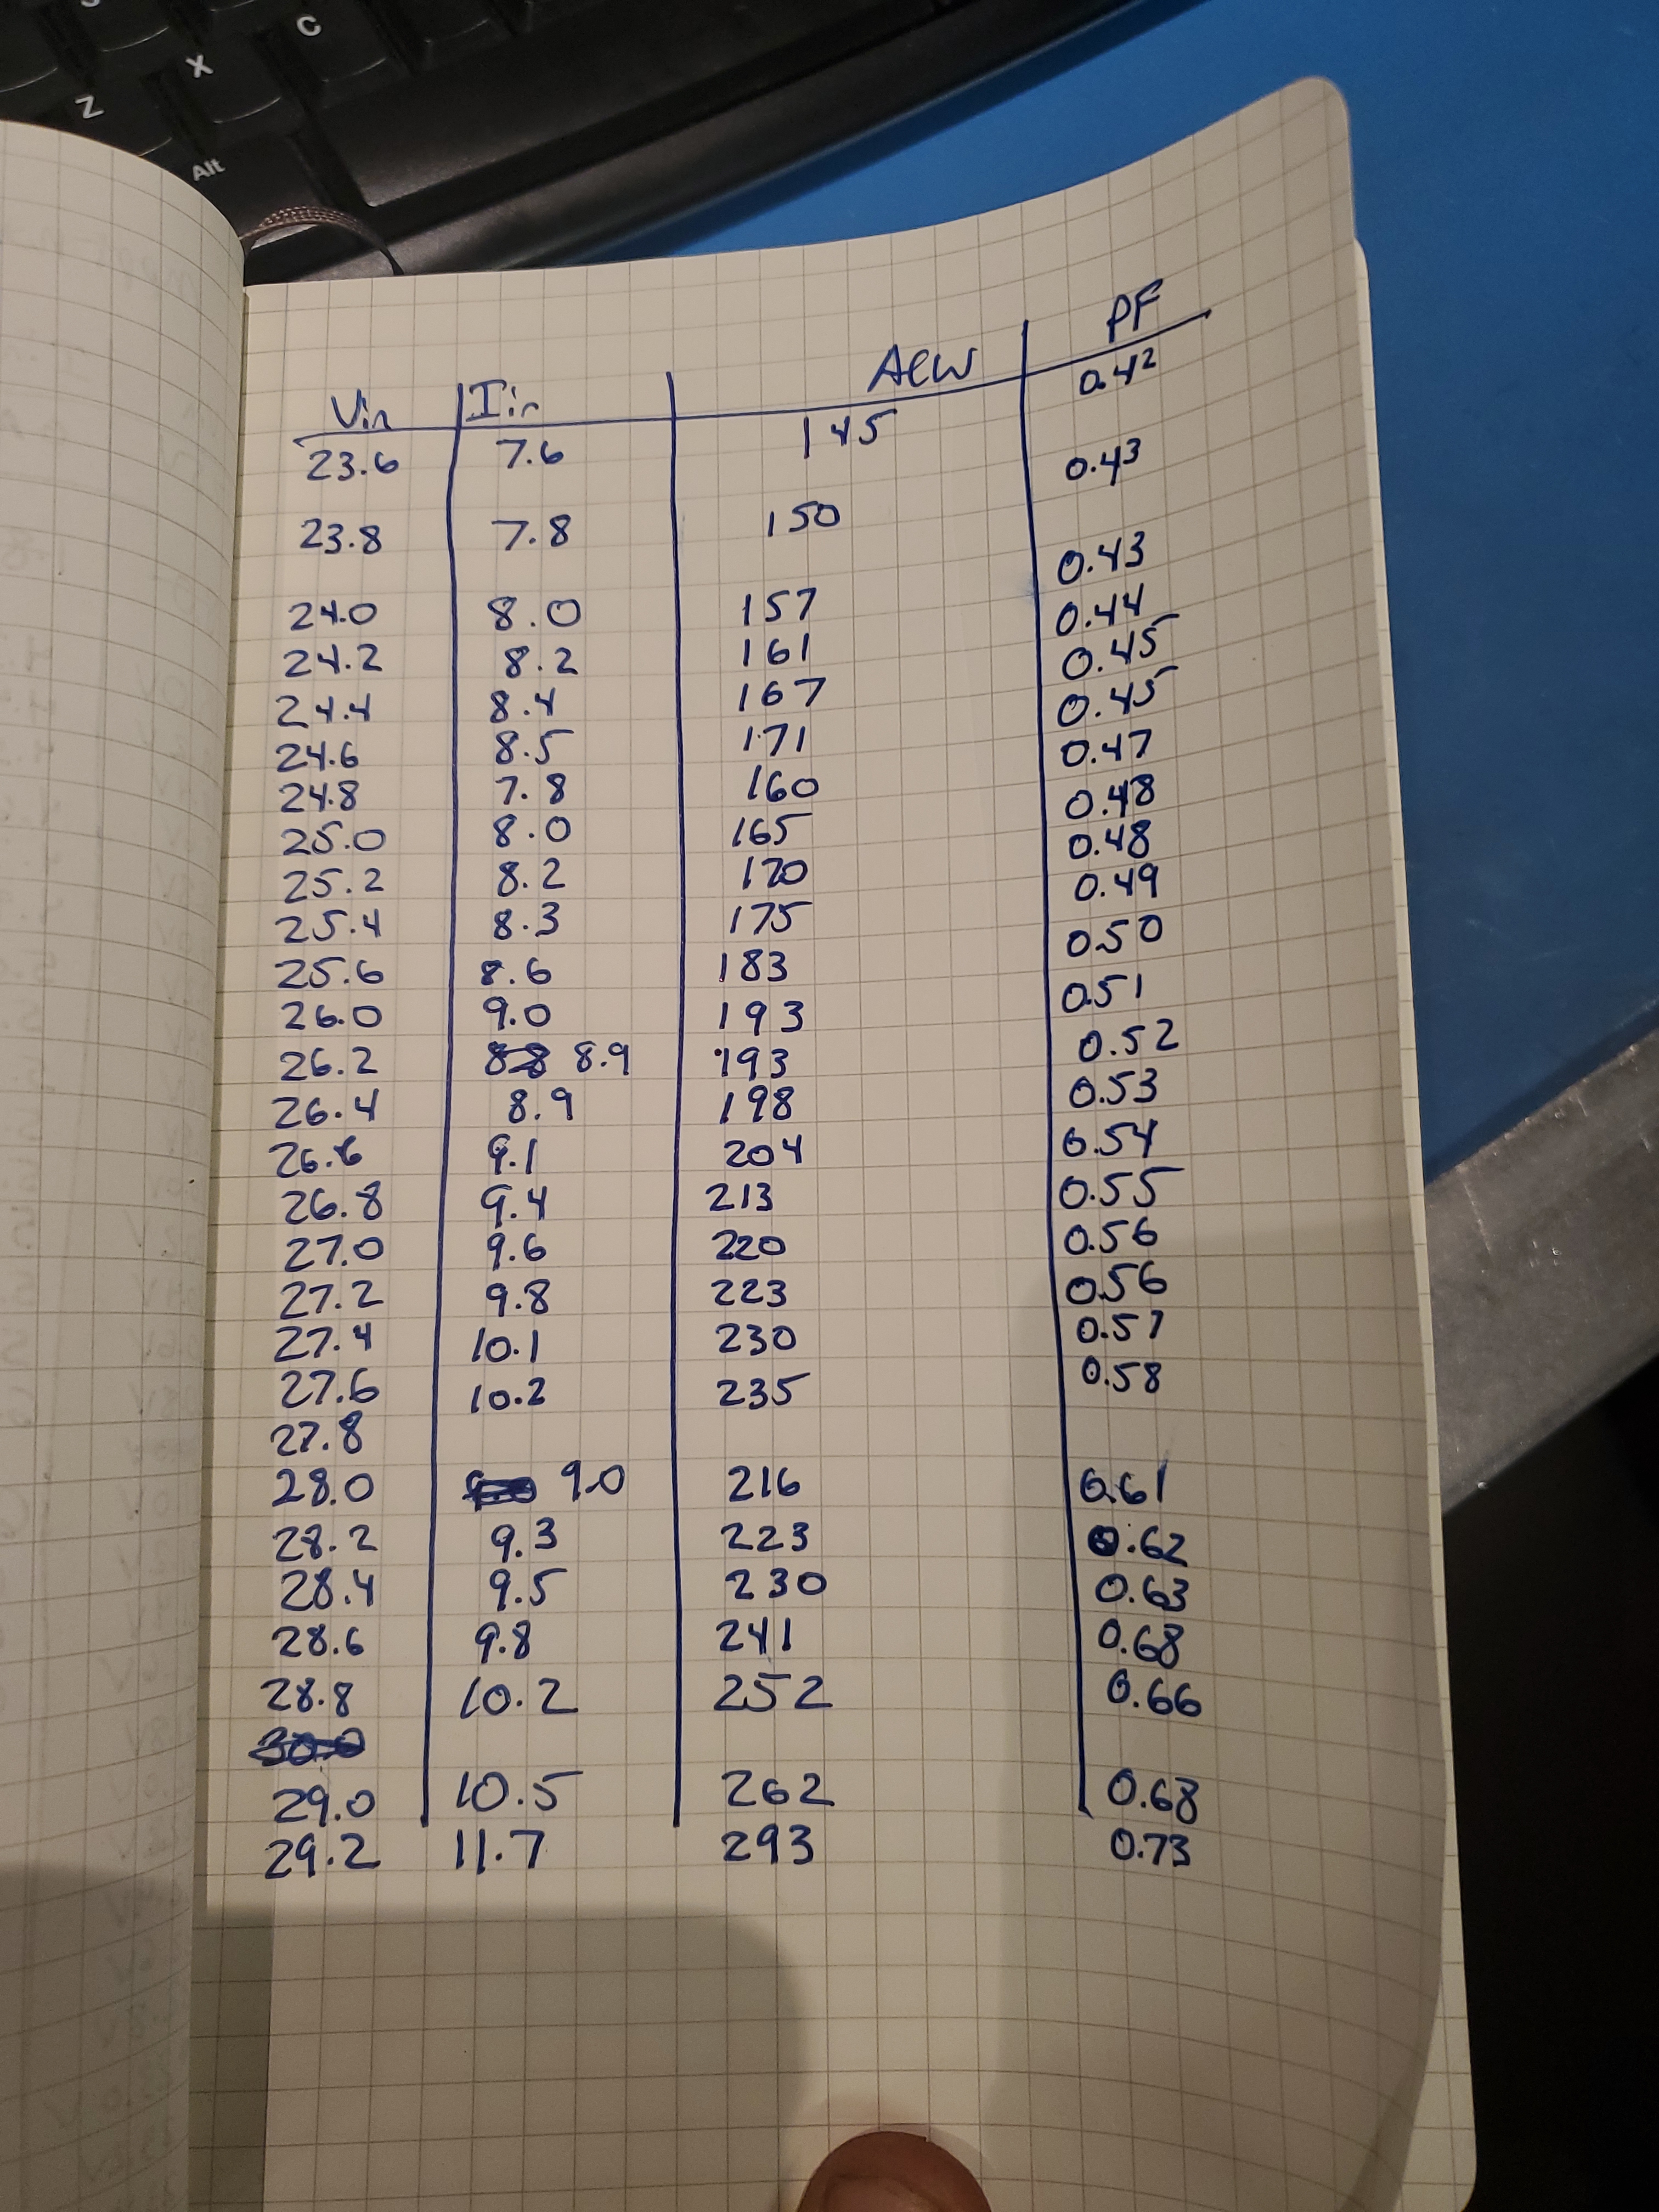 C
X
Z
Alt
Vin Iin ACW PF
23.6 7.6 145 0.42
23.8 7.8 150 0.43
24.0 8.0 157 0.43
24.2 8.2 161 0.44
24.4 8.4 167 0.45
24.6 8.5 171 0.45
24.8 7.8 160 0.47
25.0 8.0 165 0.48
25.2 8.2 170 0.48
25.4 8.3 175 0.49
25.6 8.6 183 0.50
26.0 9.0 193 0.51
26.2 8.8 8.9 193 0.52
26.4 8.9 198 0.53
26.6 9.1 204 0.54
26.8 9.4 213 0.55
27.0 9.6 220 0.56
27.2 9.8 223 0.56
27.4 10.1 230 0.57
27.6 10.2 235 0.58
27.8
28.0 9.0 216 0.61
28.2 9.3 223 0.62
28.4 9.5 230 0.63
28.6 9.8 241 0.68
28.8 10.2 252 0.66
30.0
29.0 10.5 262 0.68
29.2 11.7 293 0.73